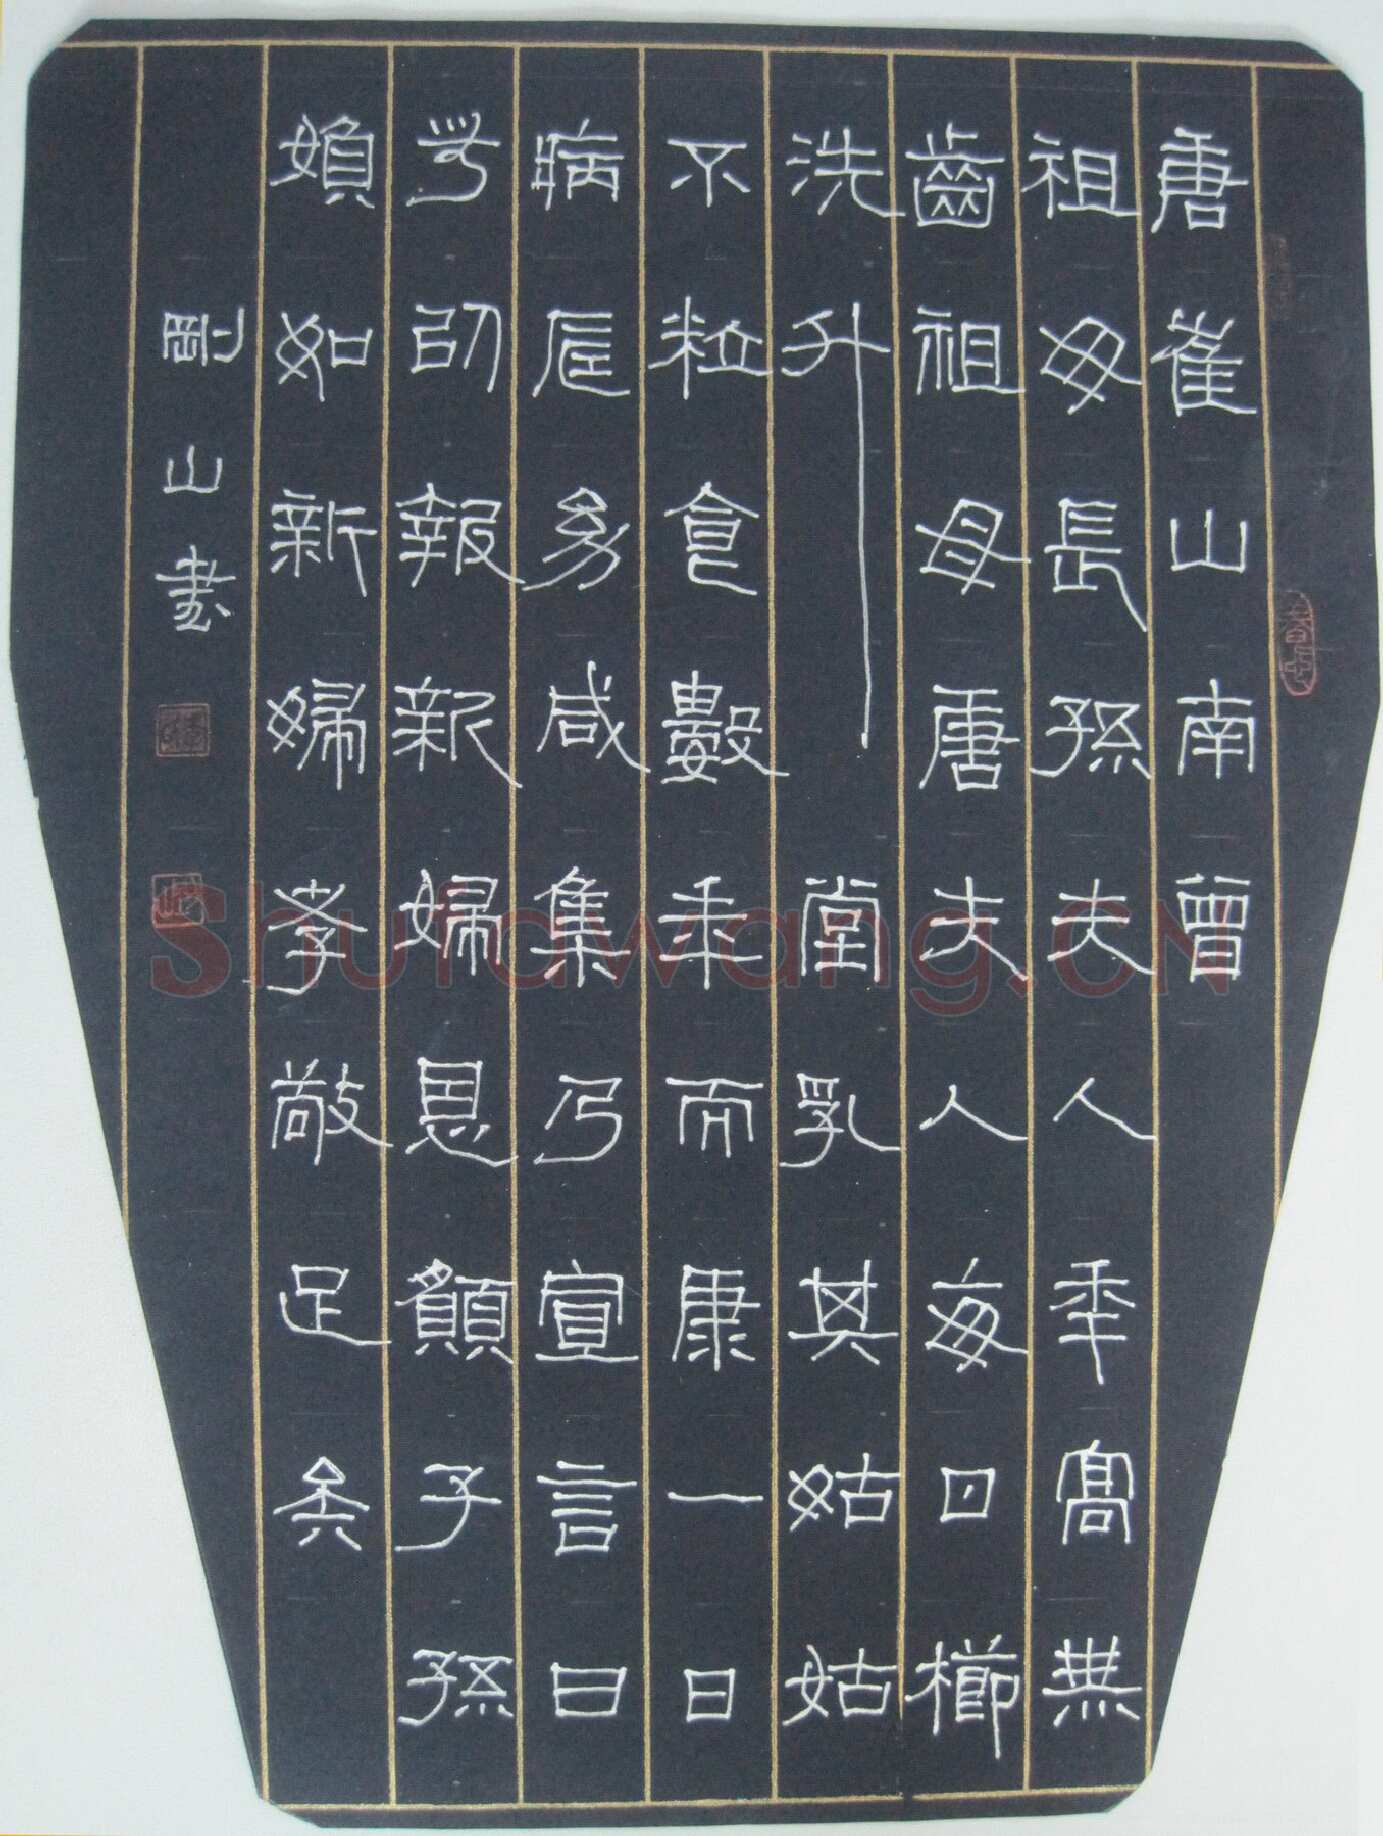 唐崔山南曾
祖母長孫夫人秊髙無
齒祖母唐夫人每日櫛
洗升堂乳其姑姑
不粒食數秊而康一日
病長幼咸集乃宣言曰
無以報新婦恩願子孫
媍如新婦孝敬足矣
剛山書
Shufawang.CN